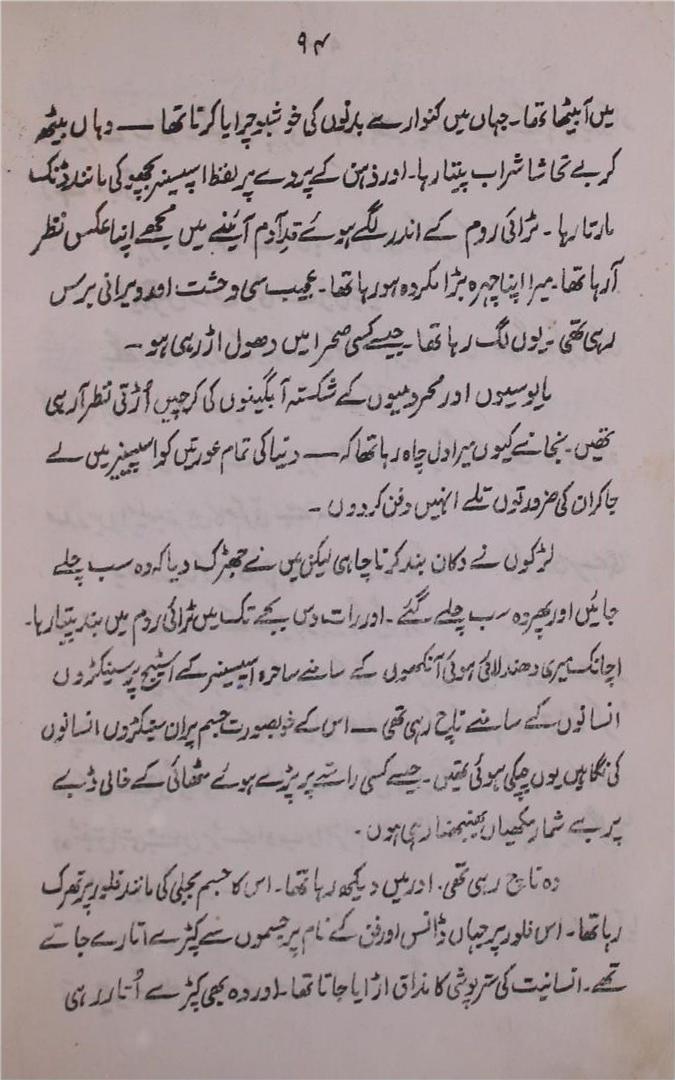 ۹۴
میں آبیٹھا تھا۔ جہاں میں کنوارے بدنوں کی خوشبو چرایا کرتا تھا — وہاں بیٹھ
کر بے تحاشا شراب پیتا رہا۔ اور ذہن کے پردے پر لفظ اسپینر بچھو کی مانند ڈنک
مارتا رہا۔ ٹرائی روم کے اندر لگے ہوئے قدِ آدم آئینے میں مجھے اپنا عکس نظر
آرہا تھا۔ میرا اپنا چہرہ بڑا مکروہ ہو رہا تھا۔ عجیب سی وحشت اور ویرانی برس
رہی تھی۔ یوں لگ رہا تھا۔ جیسے کسی صحرا میں دھول اڑ رہی ہو —
مایوسیوں اور محرومیوں کے شکستہ آبگینوں کی کرچیں اُڑتی نظر آرہی
تھیں۔ نجانے کیوں میرا دل چاہ رہا تھا کہ — دنیا کی تمام عورتیں کو اسپینر میں لے
جاکر ان کی ضرورتوں تلے انہیں دفن کردوں —
لڑکوں نے دکان بند کرنا چاہی لیکن میں نے جھڑک دیا کہ وہ سب چلے
جائیں اور پھر وہ سب چلے گئے۔ اور رات دس بجے تک میں ٹرائی روم میں بند پیتا رہا۔
اچانک میری دھندلائی ہوئی آنکھوں کے سامنے ساحرہ اسپینر کے اسٹیج پر سینکڑوں
انسانوں کے سامنے ناچ رہی تھی — اس کے خوبصورت جسم پر ان سینکڑوں انسانوں
کی نگاہیں یوں چپکی ہوئی تھیں۔ جیسے کسی راستے پر پڑے ہوئے مٹھائی کے خالی ڈبے
پر بے شمار مکھیاں بھنبھنا رہی ہوں۔
وہ ناچ رہی تھی۔ اور میں دیکھ رہا تھا۔ اس کا جسم بجلی کی مانند فلور پر تھرک
رہا تھا۔ اس فلور پر جہاں ڈانس اور فن کے نام پر جسموں سے کپڑے اتارے جاتے
تھے۔ انسانیت کی ستر پوشی کا مذاق اڑایا جاتا تھا۔ اور وہ بھی کپڑے اُتار رہی